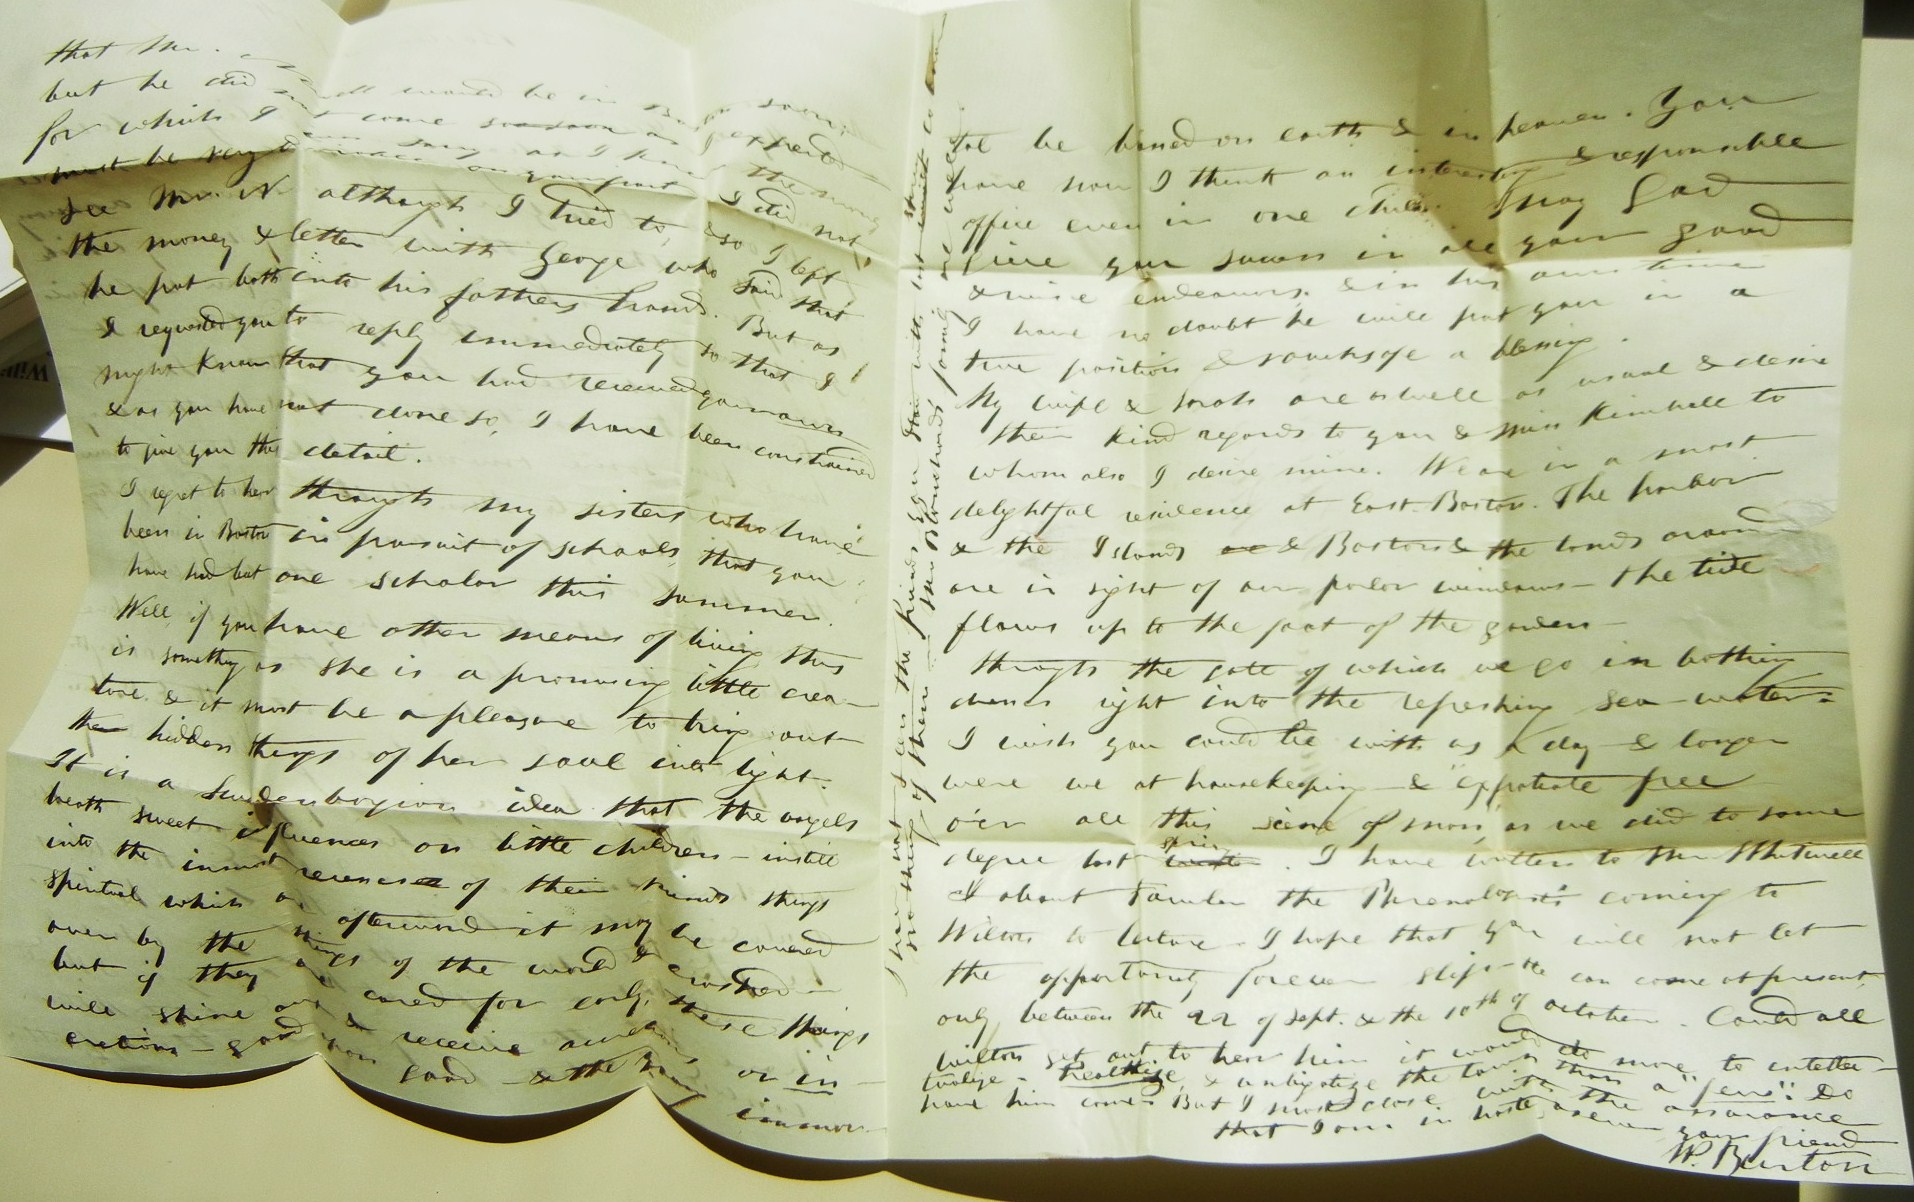 that Mr. Whitwell would be in Boston soon,
but he did not come so soon as I expected
for which I am sorry as I know the money
must be very on your part I did not
see Mr. W although I tried to, & so I left
the money & letter with George who said that
he put both into his fathers hands. But as
I requested you to reply immediately so that I
might know that you had received yours
& as you have not done so, I have been constrained
to give you the detail.
I regret to hear through my sisters who have
been in Boston in pursuit of schools, that you
have had but one scholar this summer.
Well if you have other means of living this
is something as she is a promising little crea-
ture & it must be a pleasure to bring out
the hidden things of her soul into light.
It is a Swedenborgian idea that the angels
breath sweet influences on little children – instill
into the inmost recesses of their minds things
spiritual which afterward it may be covered
over by the things of the world & crushed –
but if they are cared for early, these things
will shine out & receive accretions or in-
cretions – good upon good – & the being immor-
tal be bound on earth & in heaven. You
have now I think an interesting & responsible
office even in one child. May God
give you success in all your good
& wise endeavors. & in his own time
I have no doubt he will put you in a
true position & vouchsafe a blessing.
My wife & Sarah are as well as usual & desire
their kind regards to you & Miss Kimball to
whom also I desire mine. We are in a most
delightful residence at East Boston. The harbor
& the Islands & Boston & the lands around
are in sight of our parlor windows – the tide
flows up to the foot of the garden –
through the gate of which we go in bathing
dresses right into the refreshing sea-water.
I wish you could be with us a day & longer
were we at housekeeping – & "expatiate free
o'er all this scene of man" as we did to some
degree last spring. I have written to Mr Whitwell
about Fowler the Phrenologist's coming to
Wilton to lecture. I hope that you will not let
the opportunity forever slip – He can come at present,
only between the 22 of Sept. & the 10th of October. Could all
Wilton get out to hear him it would do more to intellec-
tualize – healthize, & the town than a "few". Do
have him come. But I must close with the assurance
that I am in haste as ever your friend
W. Burton